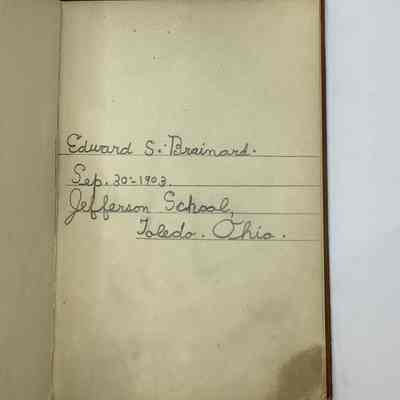 Edward S. Brainard.
Sep. 30-1903.
Jefferson School,
Toledo. Ohio.